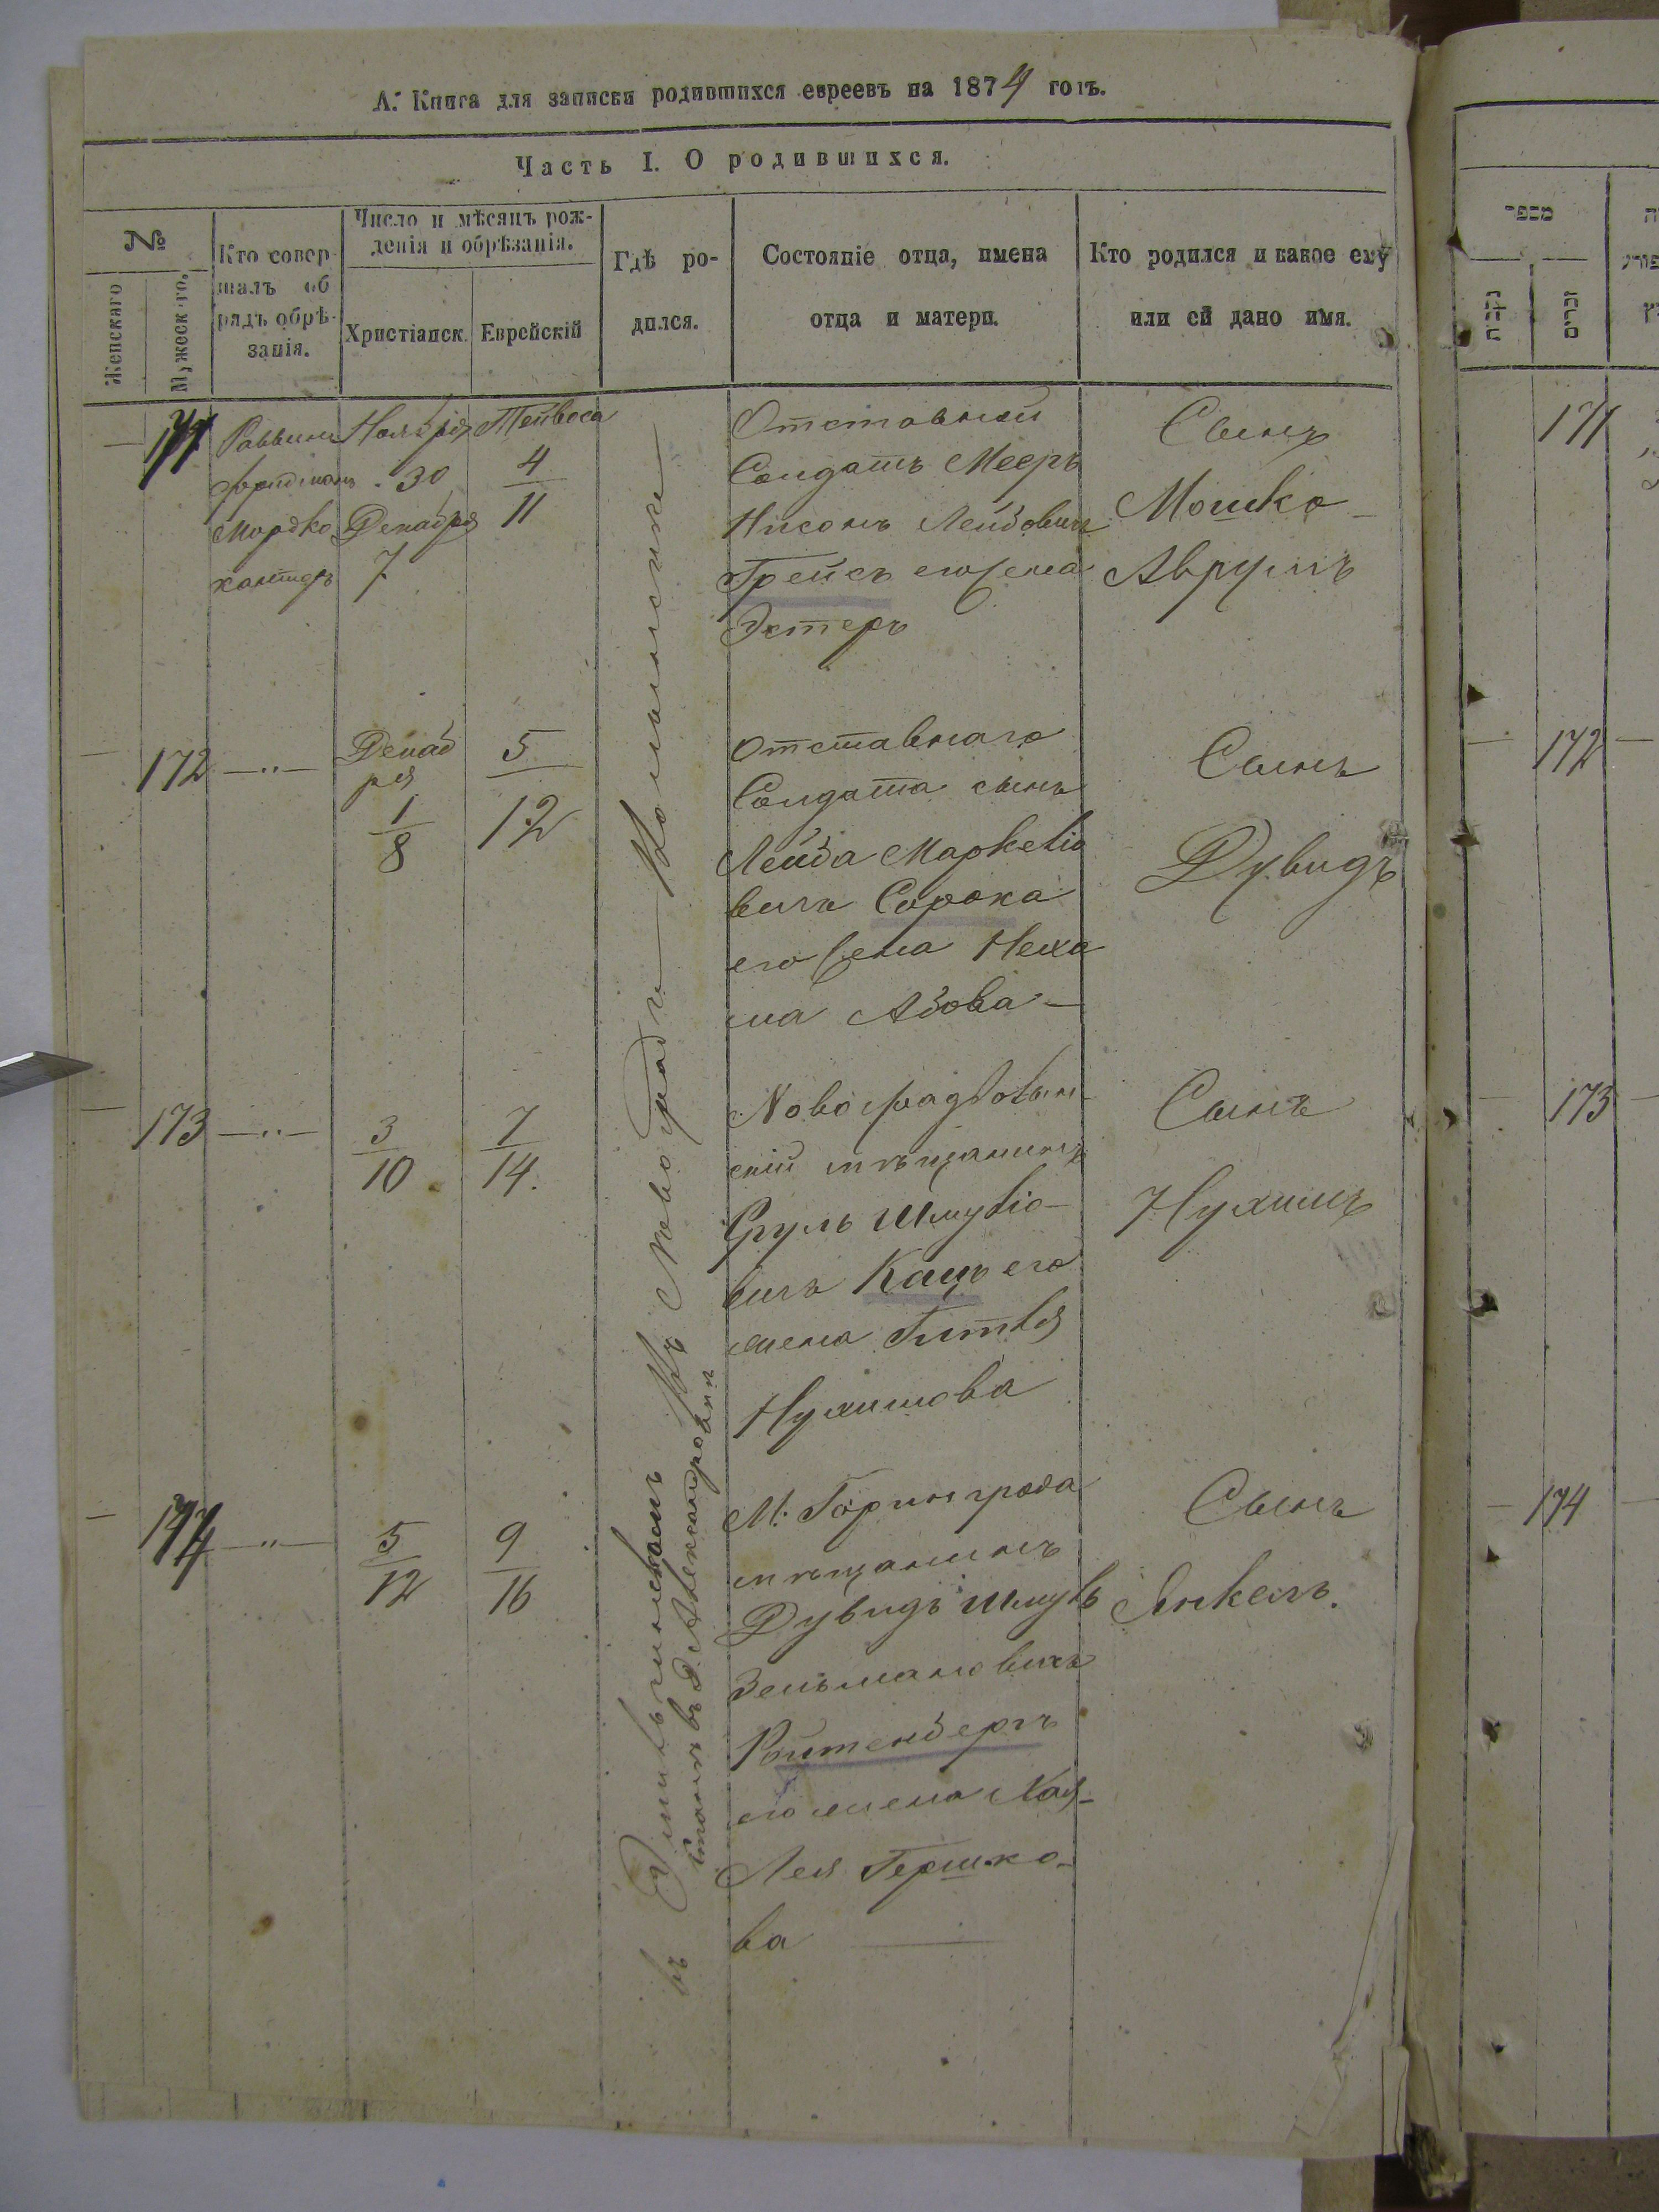 А. Книга для записки родившихся евреевъ на 1874 годъ.
Часть I. О родившихся.
№
Женскаго
Мужеск-го.
Кто совер-
шалъ об
рядъ обрѣ-
занія.
Число и мѣсяцъ рож-
денія и обрѣзанія.
Христіанск.
Еврейскій
Гдѣ ро-
дился.
Состояніе отца, имена
отца и матери.
Кто родился и какое ему
или ей дано имя.
171
Раввинъ
Фридманъ
Мордко
кантеръ
Ноября
30
Декабря
7
Тейвеса
4
11
Отставной
Солдатъ Мееръ
Нисонъ Лейбовичъ
Грейсъ его жена
Эстеръ
Сынъ
Мошко
Аврумъ
172 —"—
Декаб
ря
1
8
5
12
Отставнаго
Солдата сынъ
Лейба
вичъ Сорока
его жена Неха
ма Абова —
Сынъ
Дувидъ
173 —"—
3
10
7
14.
скій мѣщанинъ
Сруль Шмуліо-
вичъ Кацъ его
жена Гитля
Нухимова
Сынъ
Нухимъ
174 —"—
5
12
9
16
М. Горинграда
мѣщанинъ
Дувидъ Шмуль
Зельмановичъ
Ройтенбергъ
его жена Хая-
Лея Гершко-
ва
Сынъ
Янкель.
מספר
נקבות
זכרים
171
172
173
174